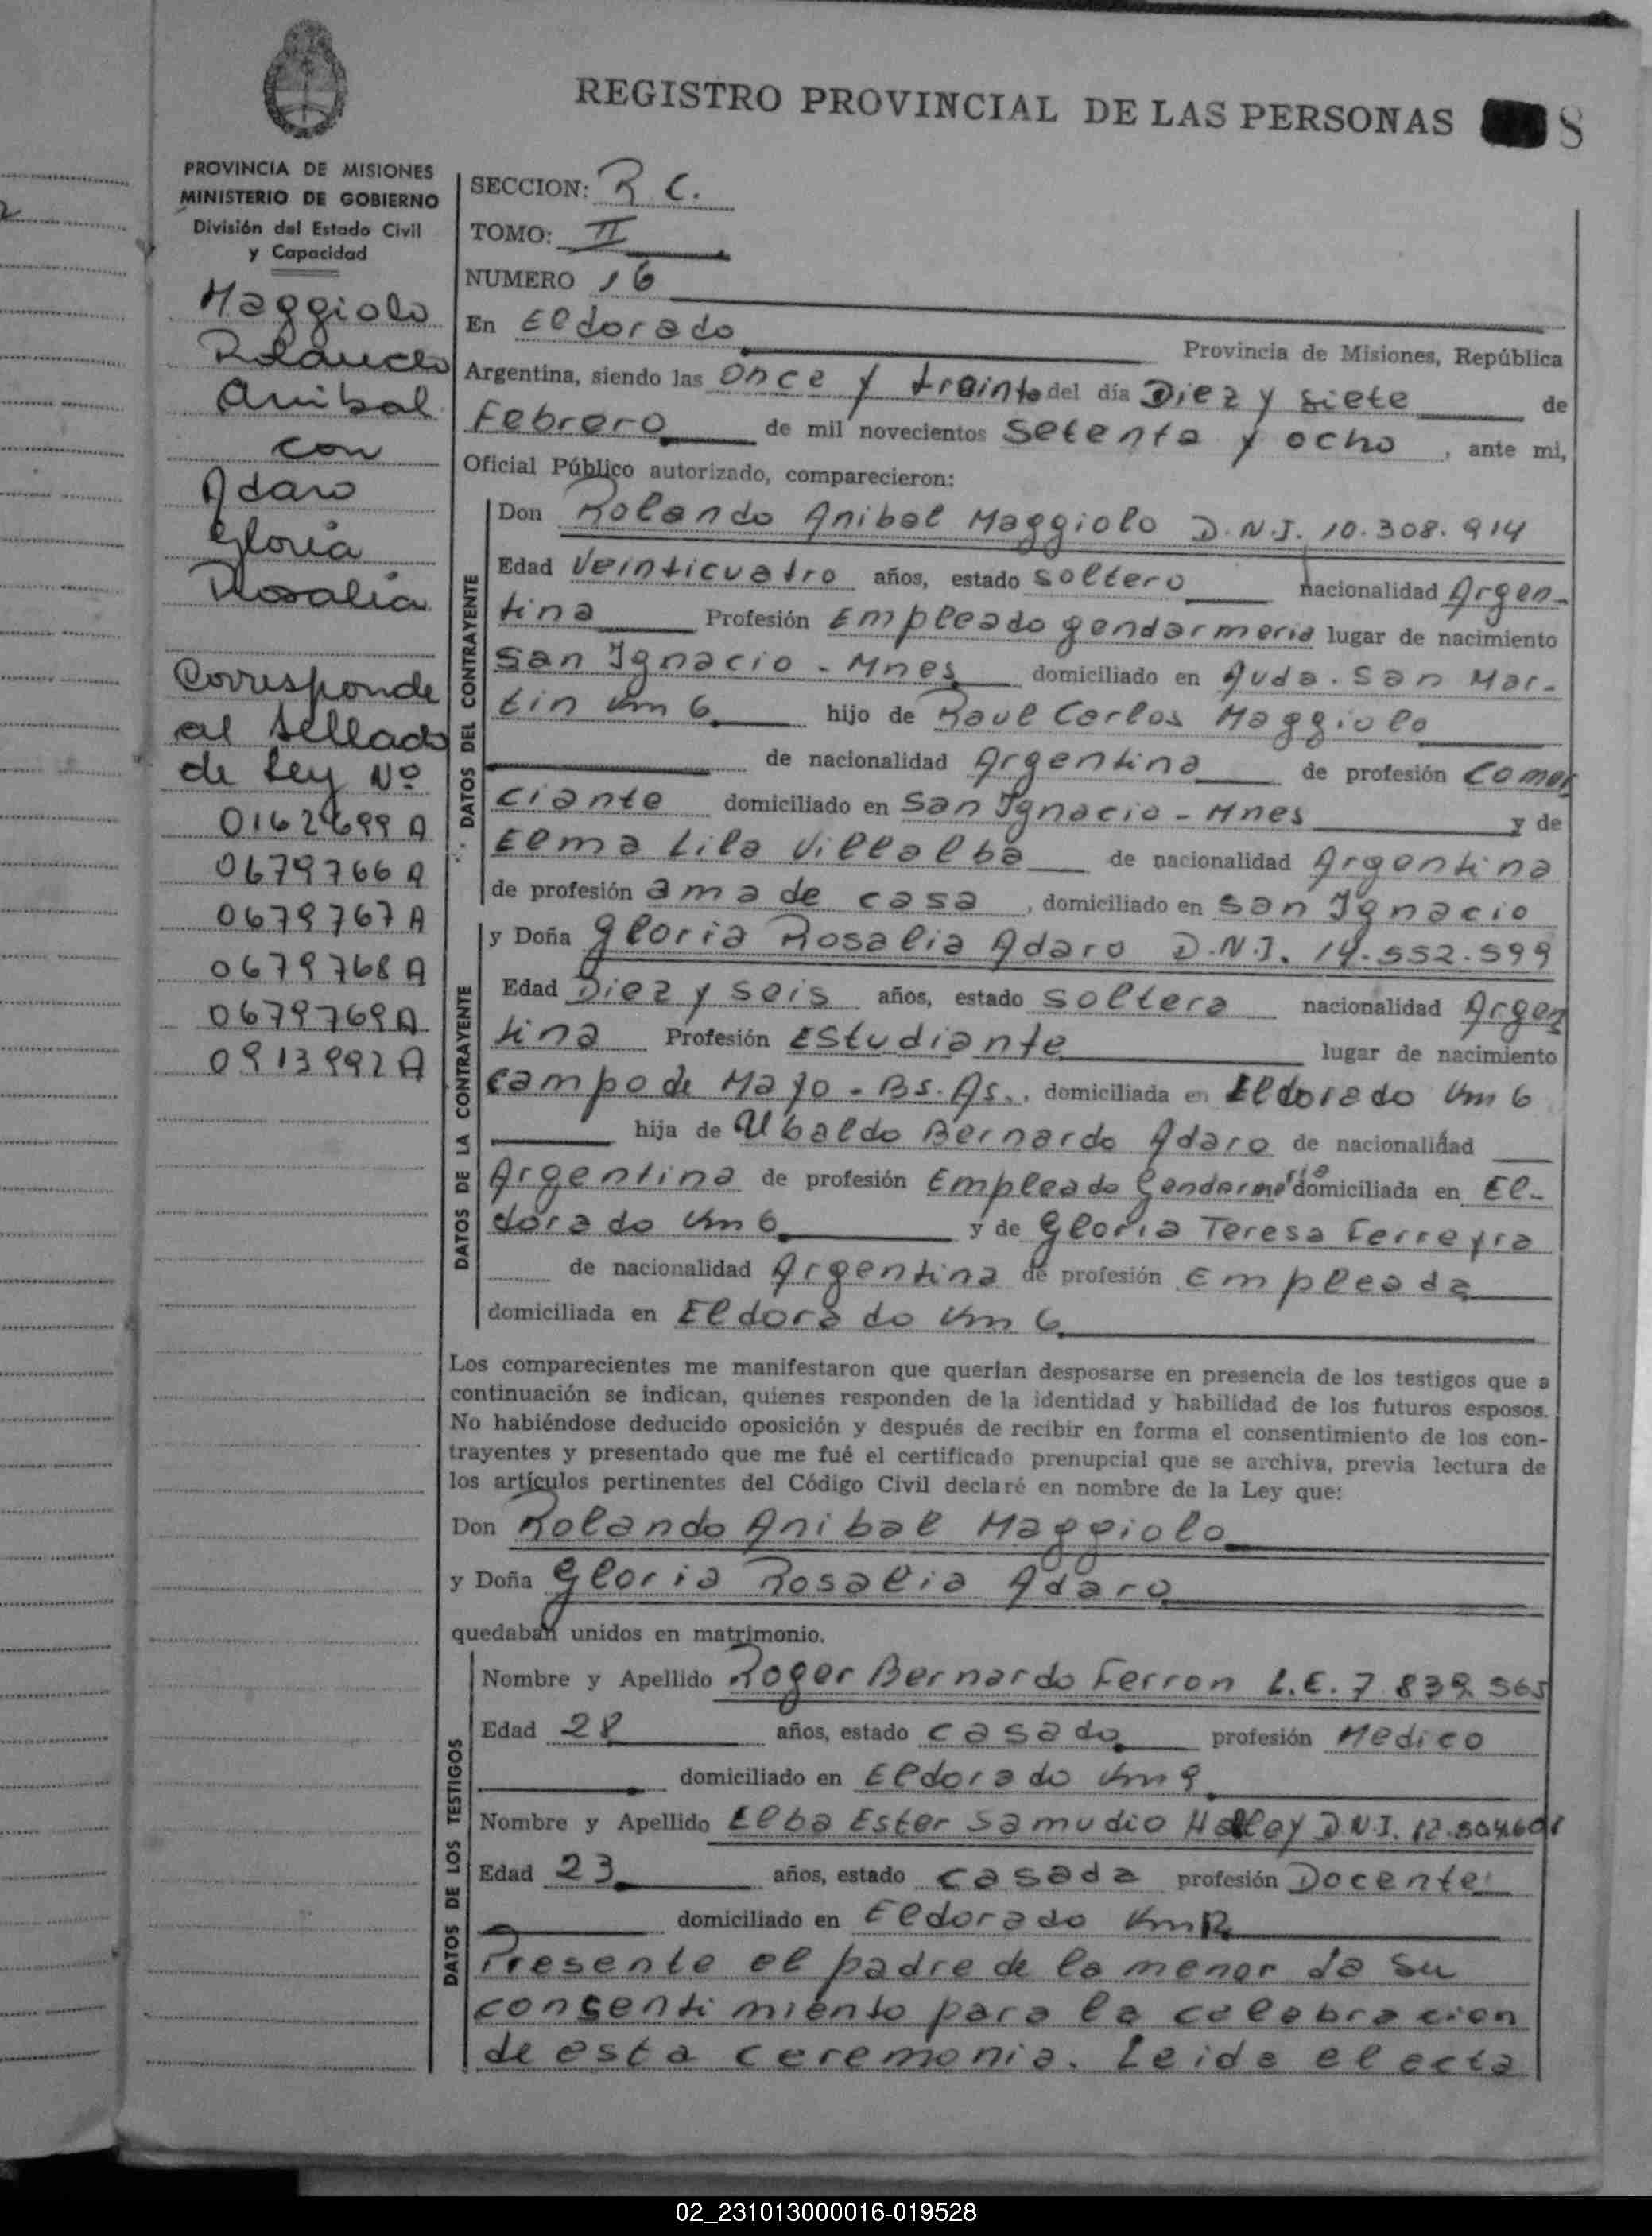 REGISTRO PROVINCIAL DE LAS PERSONAS 8
PROVINCIA DE MISIONES
MINISTERIO DE GOBIERNO
División del Estado Civil
y Capacidad
Maggiolo
Rolando
Anibal
con
Adaro
Gloria
Rosalia
Corresponde
al sellado
de Ley Nº
0162699 A
0679766 A
0679767 A
0679768 A
0679769 A
0913992 A
SECCION: R C.
TOMO: II
NUMERO 16
En Eldorado Provincia de Misiones, República
Argentina, siendo las once y treinta del día Diez y siete de
Febrero de mil novecientos setenta y ocho, ante mi,
Oficial Público autorizado, comparecieron:
DATOS DEL CONTRAYENTE
Don Rolando Anibal Maggiolo D.N.I. 10.308.914
Edad veinticuatro años, estado soltero nacionalidad Argen-
tina Profesión Empleado gendarmeria lugar de nacimiento
San Ignacio - Mnes domiciliado en Avda. San Mar-
tin Km 6 hijo de Raul Carlos Maggiolo
de nacionalidad Argentina de profesión comer
ciante domiciliado en San Ignacio - Mnes y de
Elma Lila Villalba de nacionalidad Argentina
de profesión ama de casa, domiciliado en San Ignacio
DATOS DE LA CONTRAYENTE
y Doña Gloria Rosalia Adaro D.N.I. 14.552.599
Edad Diez y seis años, estado soltera nacionalidad Argen
tina Profesión Estudiante lugar de nacimiento
campo de Mayo - Bs. As., domiciliada en Eldorado Km 6
hija de Ubaldo Bernardo Adaro de nacionalidad
Argentina de profesión Empleado Gendarmeria domiciliada en El-
dorado Km 6 y de Gloria Teresa Ferreyra
de nacionalidad Argentina de profesión Empleada
domiciliada en Eldorado Km 6
Los comparecientes me manifestaron que querían desposarse en presencia de los testigos que a
continuación se indican, quienes responden de la identidad y habilidad de los futuros esposos.
No habiéndose deducido oposición y después de recibir en forma el consentimiento de los con-
trayentes y presentado que me fué el certificado prenupcial que se archiva, previa lectura de
los artículos pertinentes del Código Civil declaré en nombre de la Ley que:
Don Rolando Anibal Maggiolo
y Doña Gloria Rosalia Adaro
quedaban unidos en matrimonio.
DATOS DE LOS TESTIGOS
Nombre y Apellido Roger Bernardo Ferron L.E. 7.839.565
Edad 28 años, estado casado profesión Medico
domiciliado en Eldorado Km 9
Nombre y Apellido Elba Ester Samudio Halley D.N.I. 12.504.601
Edad 23 años, estado casada profesión Docente
domiciliado en Eldorado Km
Presente el padre de la menor da su
consentimiento para la celebracion
de esta ceremonia. Leida el acta
02_231013000016-019528